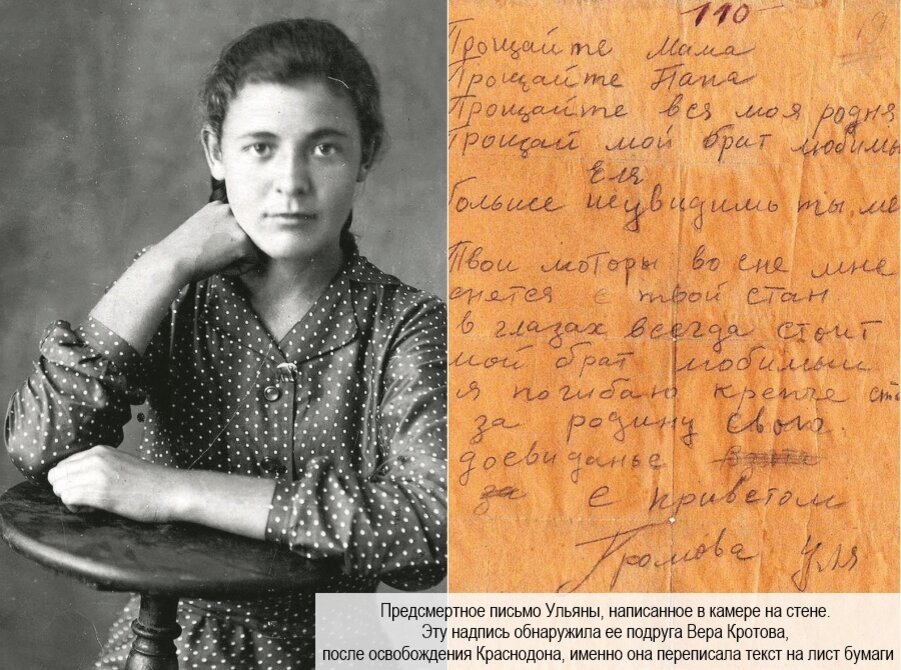 110
19
Прощайте Мама
Прощайте Папа
Прощайте вся моя родня
Прощай мой брат любимы
Еля
Больше неувидишь ты ме
Твои моторы во сне мне
снется с твой стан
в глазах всегда стоит
мой брат любимый
я погибаю крепче сто
за родину свою.
досвиданье
с приветом
Громова Уля
Предсмертное письмо Ульяны, написанное в камере на стене.
Эту надпись обнаружила ее подруга Вера Кротова,
после освобождения Краснодона, именно она переписала текст на лист бумаги